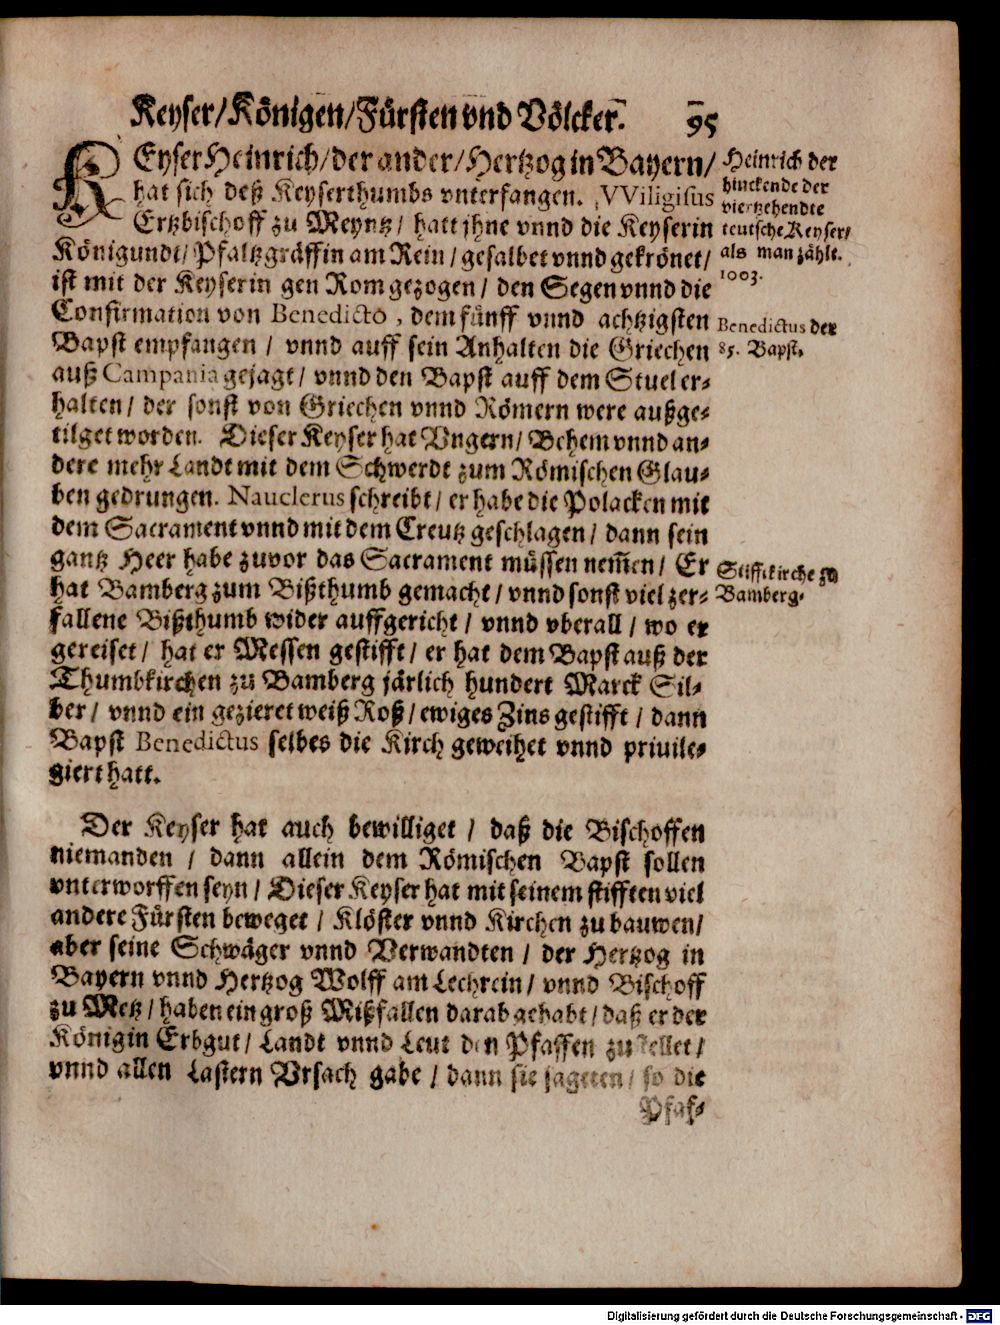 Keyser/ Königen/ Fürsten vnd Völcker. 95
KEyser Heinrich/ der ander/ Hertzog in Bayern/
hat sich deß Keyserthumbs vnterfangen. VViligisus
Ertzbischoff zu Meyntz/ hatt jhne vnnd die Keyserin
Königundt/ Pfaltzgräffin am Rein/ gesalbet vnnd gekrönet/
ist mit der Keyserin gen Rom gezogen/ den Segen vnnd die
Confirmation von Benedicto, dem fünff vnnd achtzigsten
Bapst empfangen/ vnnd auff sein Anhalten die Griechen
auß Campania gejagt/ vnnd den Bapst auff dem Stuel er-
halten/ der sonst von Griechen vnnd Römern were außge-
tilget worden. Dieser Keyser hat Vngern/ Behem vnnd an-
dere mehr Landt mit dem Schwerdt zum Römischen Glau-
ben gedrungen. Nauclerus schreibt/ er habe die Polacken mit
dem Sacrament vnnd mit dem Creutz geschlagen/ dann sein
gantz Heer habe zuvor das Sacrament müssen nem̃en/ Er
hat Bamberg zum Bißthumb gemacht/ vnnd sonst viel zer-
fallene Bißthumb wider auffgericht/ vnnd vberall/ wo er
gereiset/ hat er Messen gestifft/ er hat dem Bapst auß der
Thumbkirchen zu Bamberg järlich hundert Marck Sil-
ber/ vnnd ein gezieret weiß Roß/ ewiges Zins gestifft/ dann
Bapst Benedictus selbes die Kirch geweihet vnnd priuile-
giert hatt.
Der Keyser hat auch bewilliget/ daß die Bischoffen
niemanden/ dann allein dem Römischen Bapst sollen
vnterworffen seyn/ Dieser Keyser hat mit seinem stifften viel
andere Fürsten beweget/ Klöster vnnd Kirchen zu bauwen/
aber seine Schwäger vnnd Verwandten/ der Hertzog in
Bayern vnnd Hertzog Wolff am Lechrein/ vnnd Bischoff
zu Metz/ haben ein groß Mißfallen darab gehabt/ daß er der
Königin Erbgut/ Landt vnnd Leut den Pfaffen zustellet/
vnnd allen Lastern Vrsach gabe/ dann sie jageten/ so die
Pfaf-
Heinrich der
hinckende der
viertzehendte
teutsche Keyser/
als man zählt.
1003.
Benedictus der
85. Bapst.
Stifftkirche zu
Bamberg.
Digitalisierung gefördert durch die Deutsche Forschungsgemeinschaft - DFG